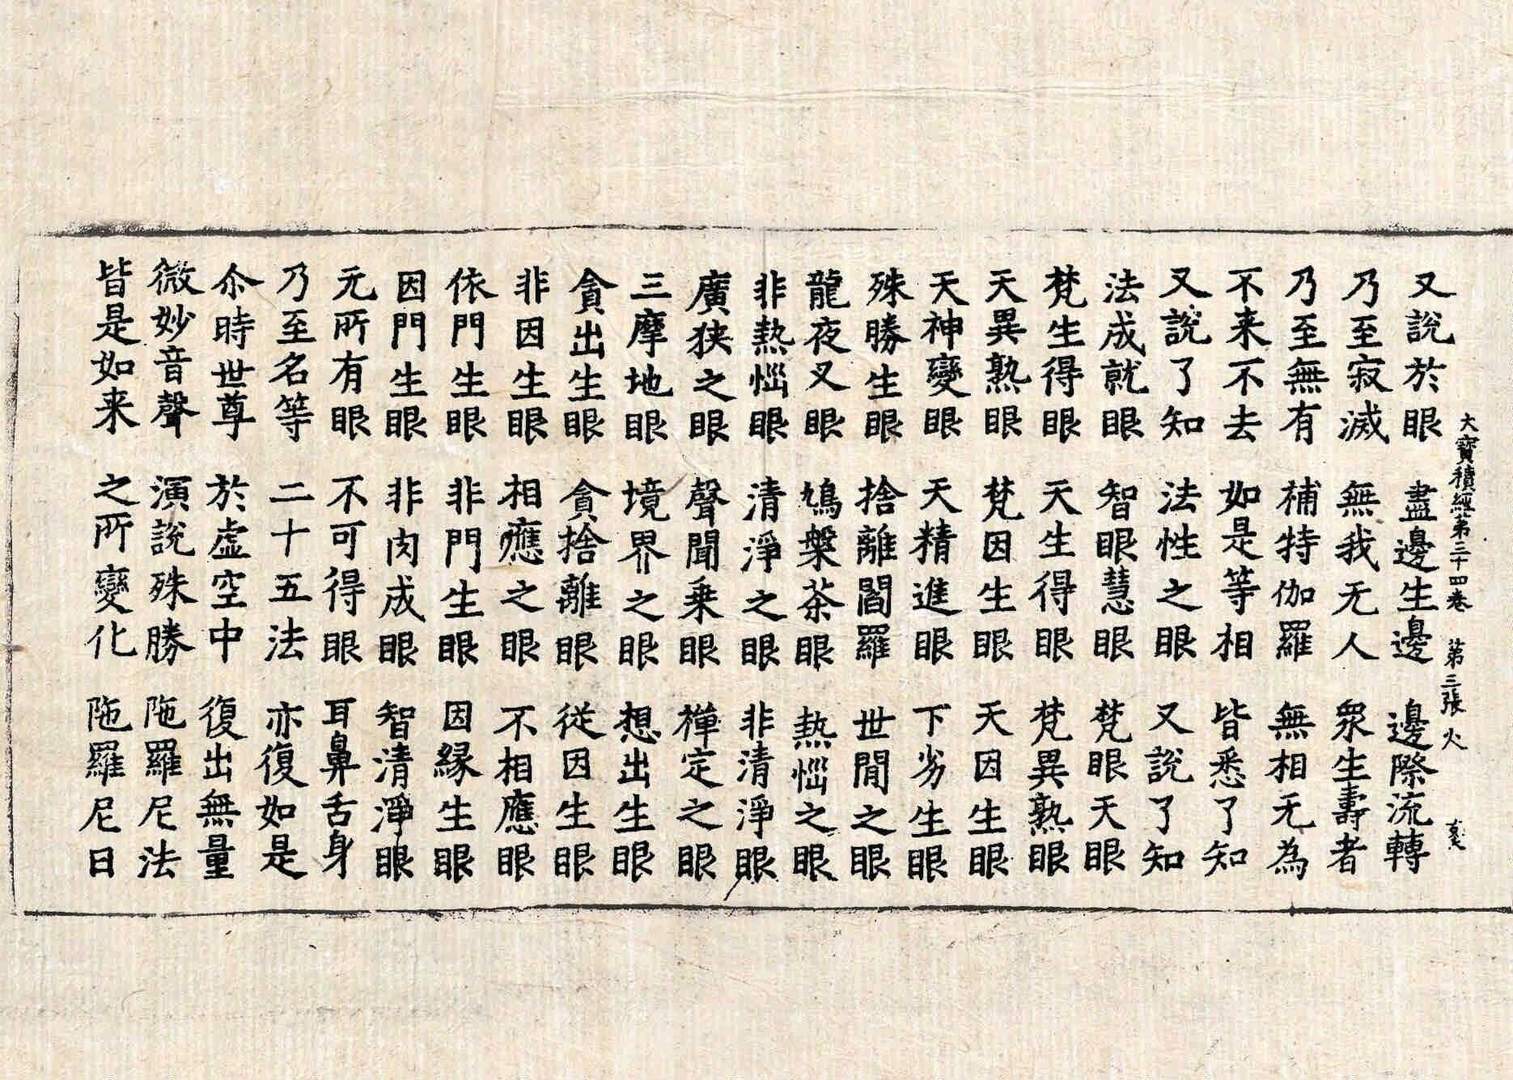 大寶積經第三十四卷 第三張 火
又說於眼 盡邊生邊 邊際流轉
乃至寂滅 無我无人 衆生壽者
乃至無有 補特伽羅 無相无為
不来不去 如是等相 皆悉了知
又說了知 法性之眼 又說了知
法成就眼 智眼慧眼 梵眼天眼
梵生得眼 天生得眼 梵異熟眼
天異熟眼 梵因生眼 天因生眼
天神變眼 天精進眼 下劣生眼
殊勝生眼 捨離閻羅 世間之眼
龍夜叉眼 鳩槃茶眼 熱惱之眼
非熱惱眼 清淨之眼 非清淨眼
廣狹之眼 聲聞乗眼 禪定之眼
三摩地眼 境界之眼 想出生眼
貪出生眼 貪捨離眼 從因生眼
非因生眼 相應之眼 不相應眼
依門生眼 非門生眼 因縁生眼
因門生眼 非肉成眼 智清淨眼
无所有眼 不可得眼 耳鼻舌身
乃至名等 二十五法 亦復如是
尒時世尊 於虛空中 復出無量
微妙音聲 演說殊勝 陁羅尼法
皆是如来 之所變化 陁羅尼日